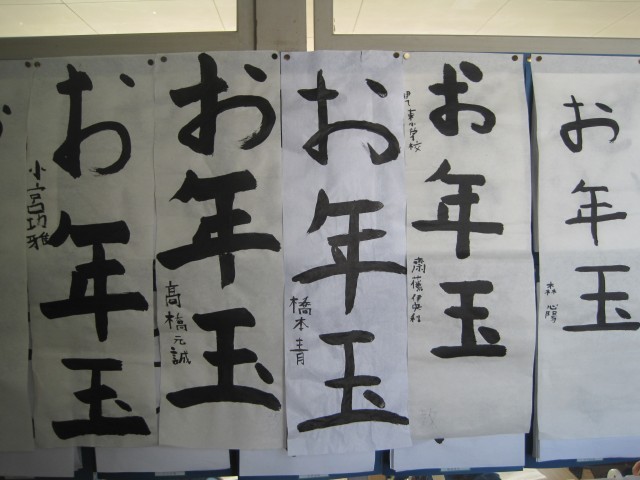 お年玉
小宮功雅
お年玉
高橋元誠
お年玉
橋本青
お年玉
お年玉
森